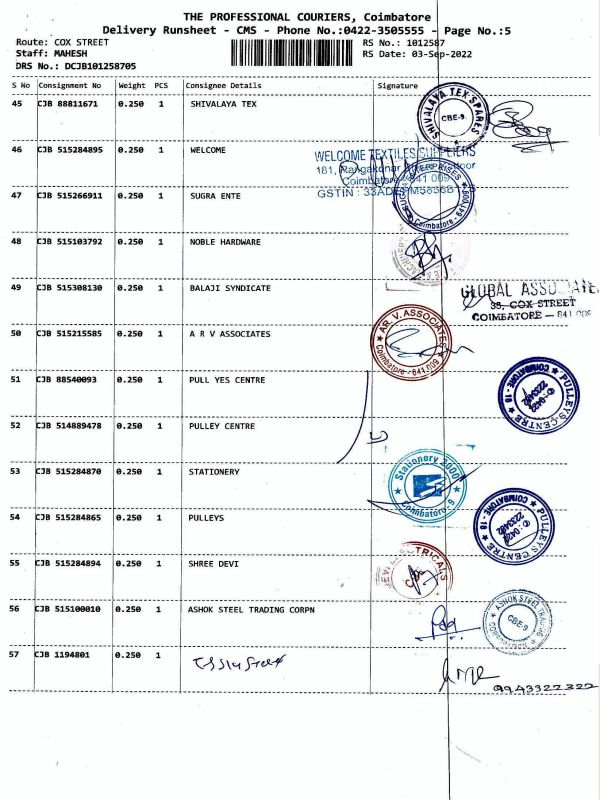 THE PROFESSIONAL COURIERS, Coimbatore
Delivery Runsheet - CMS - Phone No.:0422-3505555 - Page No.:5
Route: COX STREET RS No.: 1012587
Staff: MAHESH RS Date: 03-Sep-2022
DRS No.: DCJB101258705
S No Consignment No Weight PCS Consignee Details Signature
45 CJB 88811671 0.250 1 SHIVALAYA TEX
SHIVALAYA TEX SPARES
CBE-9.
46 CJB 515284895 0.250 1 WELCOME
WELCOME TEXTILES SUPPLIERS
181,
Coimbatore - 641 009
GSTIN : 33AD
47 CJB 515266911 0.250 1 SUGRA ENTE
48 CJB 515103792 0.250 1 NOBLE HARDWARE
49 CJB 515308130 0.250 1 BALAJI SYNDICATE
GLOBAL ASSOCIATE
38, COX STREET
COIMBATORE — 641 009
50 CJB 515215585 0.250 1 A R V ASSOCIATES
AR. V. ASSOCIATES
Coimbatore - 641 009
51 CJB 88540093 0.250 1 PULL YES CENTRE
PULLEYS CENTRE
COIMBATORE - 18
✆: 0422
2233482
52 CJB 514889478 0.250 1 PULLEY CENTRE
53 CJB 515284870 0.250 1 STATIONERY
Stationery 2000
Coimbatore-9
54 CJB 515284865 0.250 1 PULLEYS
PULLEYS CENTRE
COIMBATORE - 18
✆: 0422
2233482
55 CJB 515284894 0.250 1 SHREE DEVI
DEVI ELECTRICALS
56 CJB 515100010 0.250 1 ASHOK STEEL TRADING CORPN
ASHOK STEEL TRADING
CBE-9
57 CJB 1194801 0.250 1
9943322322